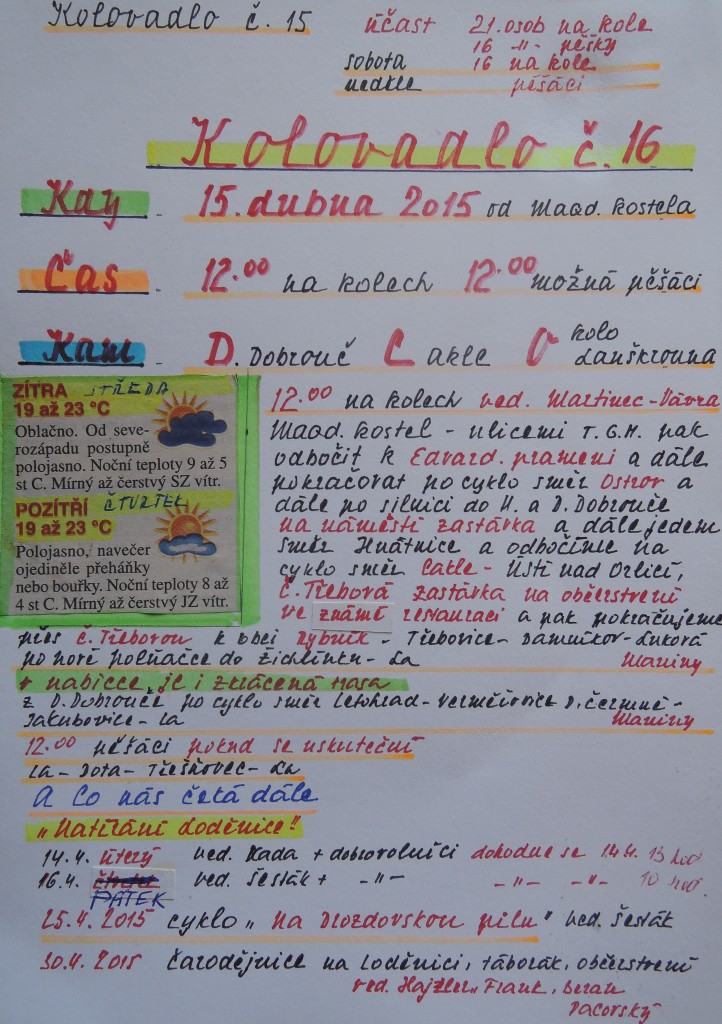 Kolovadlo č. 15
účast 21. osob na kole
16 -"- pěšky
sobota 16 na kole
neděle pěšáci
Kolovadlo č. 16
Kdy - 15. dubna 2015 od Magd. kostela
Čas - 12.00 na kolech 12.00 možná pěšáci
Kam - D. Dobrouč Cakle Okolo Lanškrouna
ZÍTRA STŘEDA
19 až 23 °C
Oblačno. Od seve-
rozápadu postupně
polojasno. Noční teploty 9 až 5
st C. Mírný až čerstvý SZ vítr.
POZÍTŘÍ ČTVRTEK
19 až 23 °C
Polojasno, navečer
ojediněle přeháňky
nebo bouřky. Noční teploty 8 až
4 st C. Mírný až čerstvý JZ vítr.
12.00 na kolech ved. Martinec - Vávra
Magd. kostel - ulicemi T.G.M. pak
odbočit k Edvard. prameni a dále
pokračovat po cyklo směr Ostrov a
dále po silnici do H. a D. Dobrouče
na náměstí zastávka a dále jedem
směr Hnátnice a odbočíme na
cyklo směr Cakle - Ústí nad Orlicí,
Č. Třebová zastávka na občerstvení
ve známé restauraci a pak pokračujeme
přes Č. Třebovou k obci Rybník - Třebovice - Damníkov - Luková
po nové polňačce do Žichlínku - La Mariny
v nabídce je i zkrácená trasa
z D. Dobrouče po cyklo směr Letohrad - Verměřovice D. Čermná -
Jakubovice - La Mariny
12.00 pěšáci pokud se uskuteční
La - Dota - Třešňovec - La
A co nás čeká dále
"Natírání loděnice!"
14.4. úterý ved. Kada + dobrovolníci dohodne se 14.4. 13 hod
16.4. PÁTEK ved. Šesták + -"- -"- -"- 10 hod.
25.4. 2015 cyklo "na Drozdovskou pilu" ved. Šesták
30.4. 2015 Čarodějnice na loděnici, táborák, občerstvení
ved. Hajzler, Frank, Beran
Pacovský